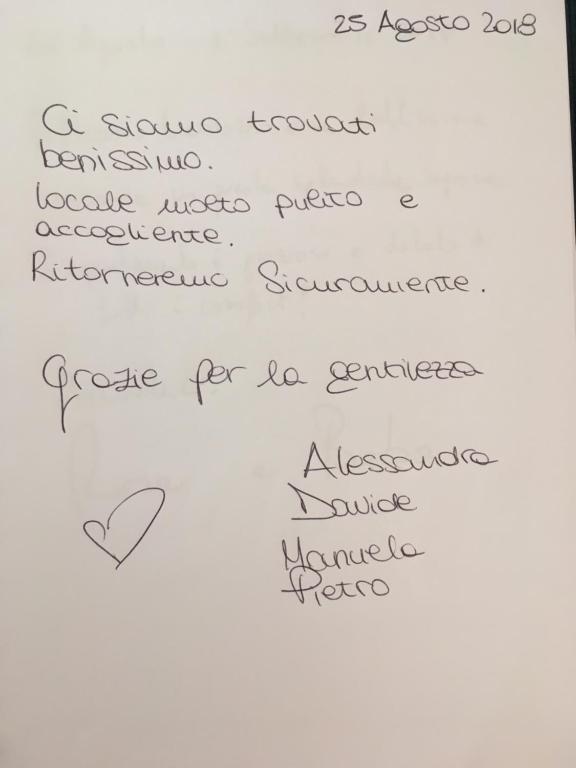 25 Agosto 2018
Ci siamo trovati
benissimo.
locale molto pulito e
accogliente.
Ritorneremo Sicuramente.
Grazie per la gentilezza
Alessandra
Davide
Manuela
Pietro